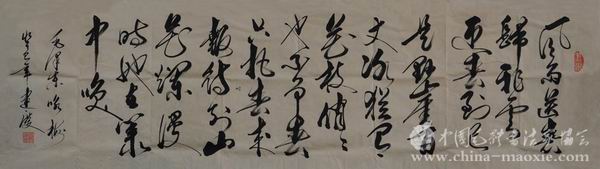 风雨送春
歸飛雪
迎春到已
是懸崖百
丈冰犹有
花枝俏〻
也不争春
只把春来
報待到山
花爛漫
时她在叢
中笑
毛泽东咏梅
癸巳年建
中国毛体书法协会
www.china-maoxie.com